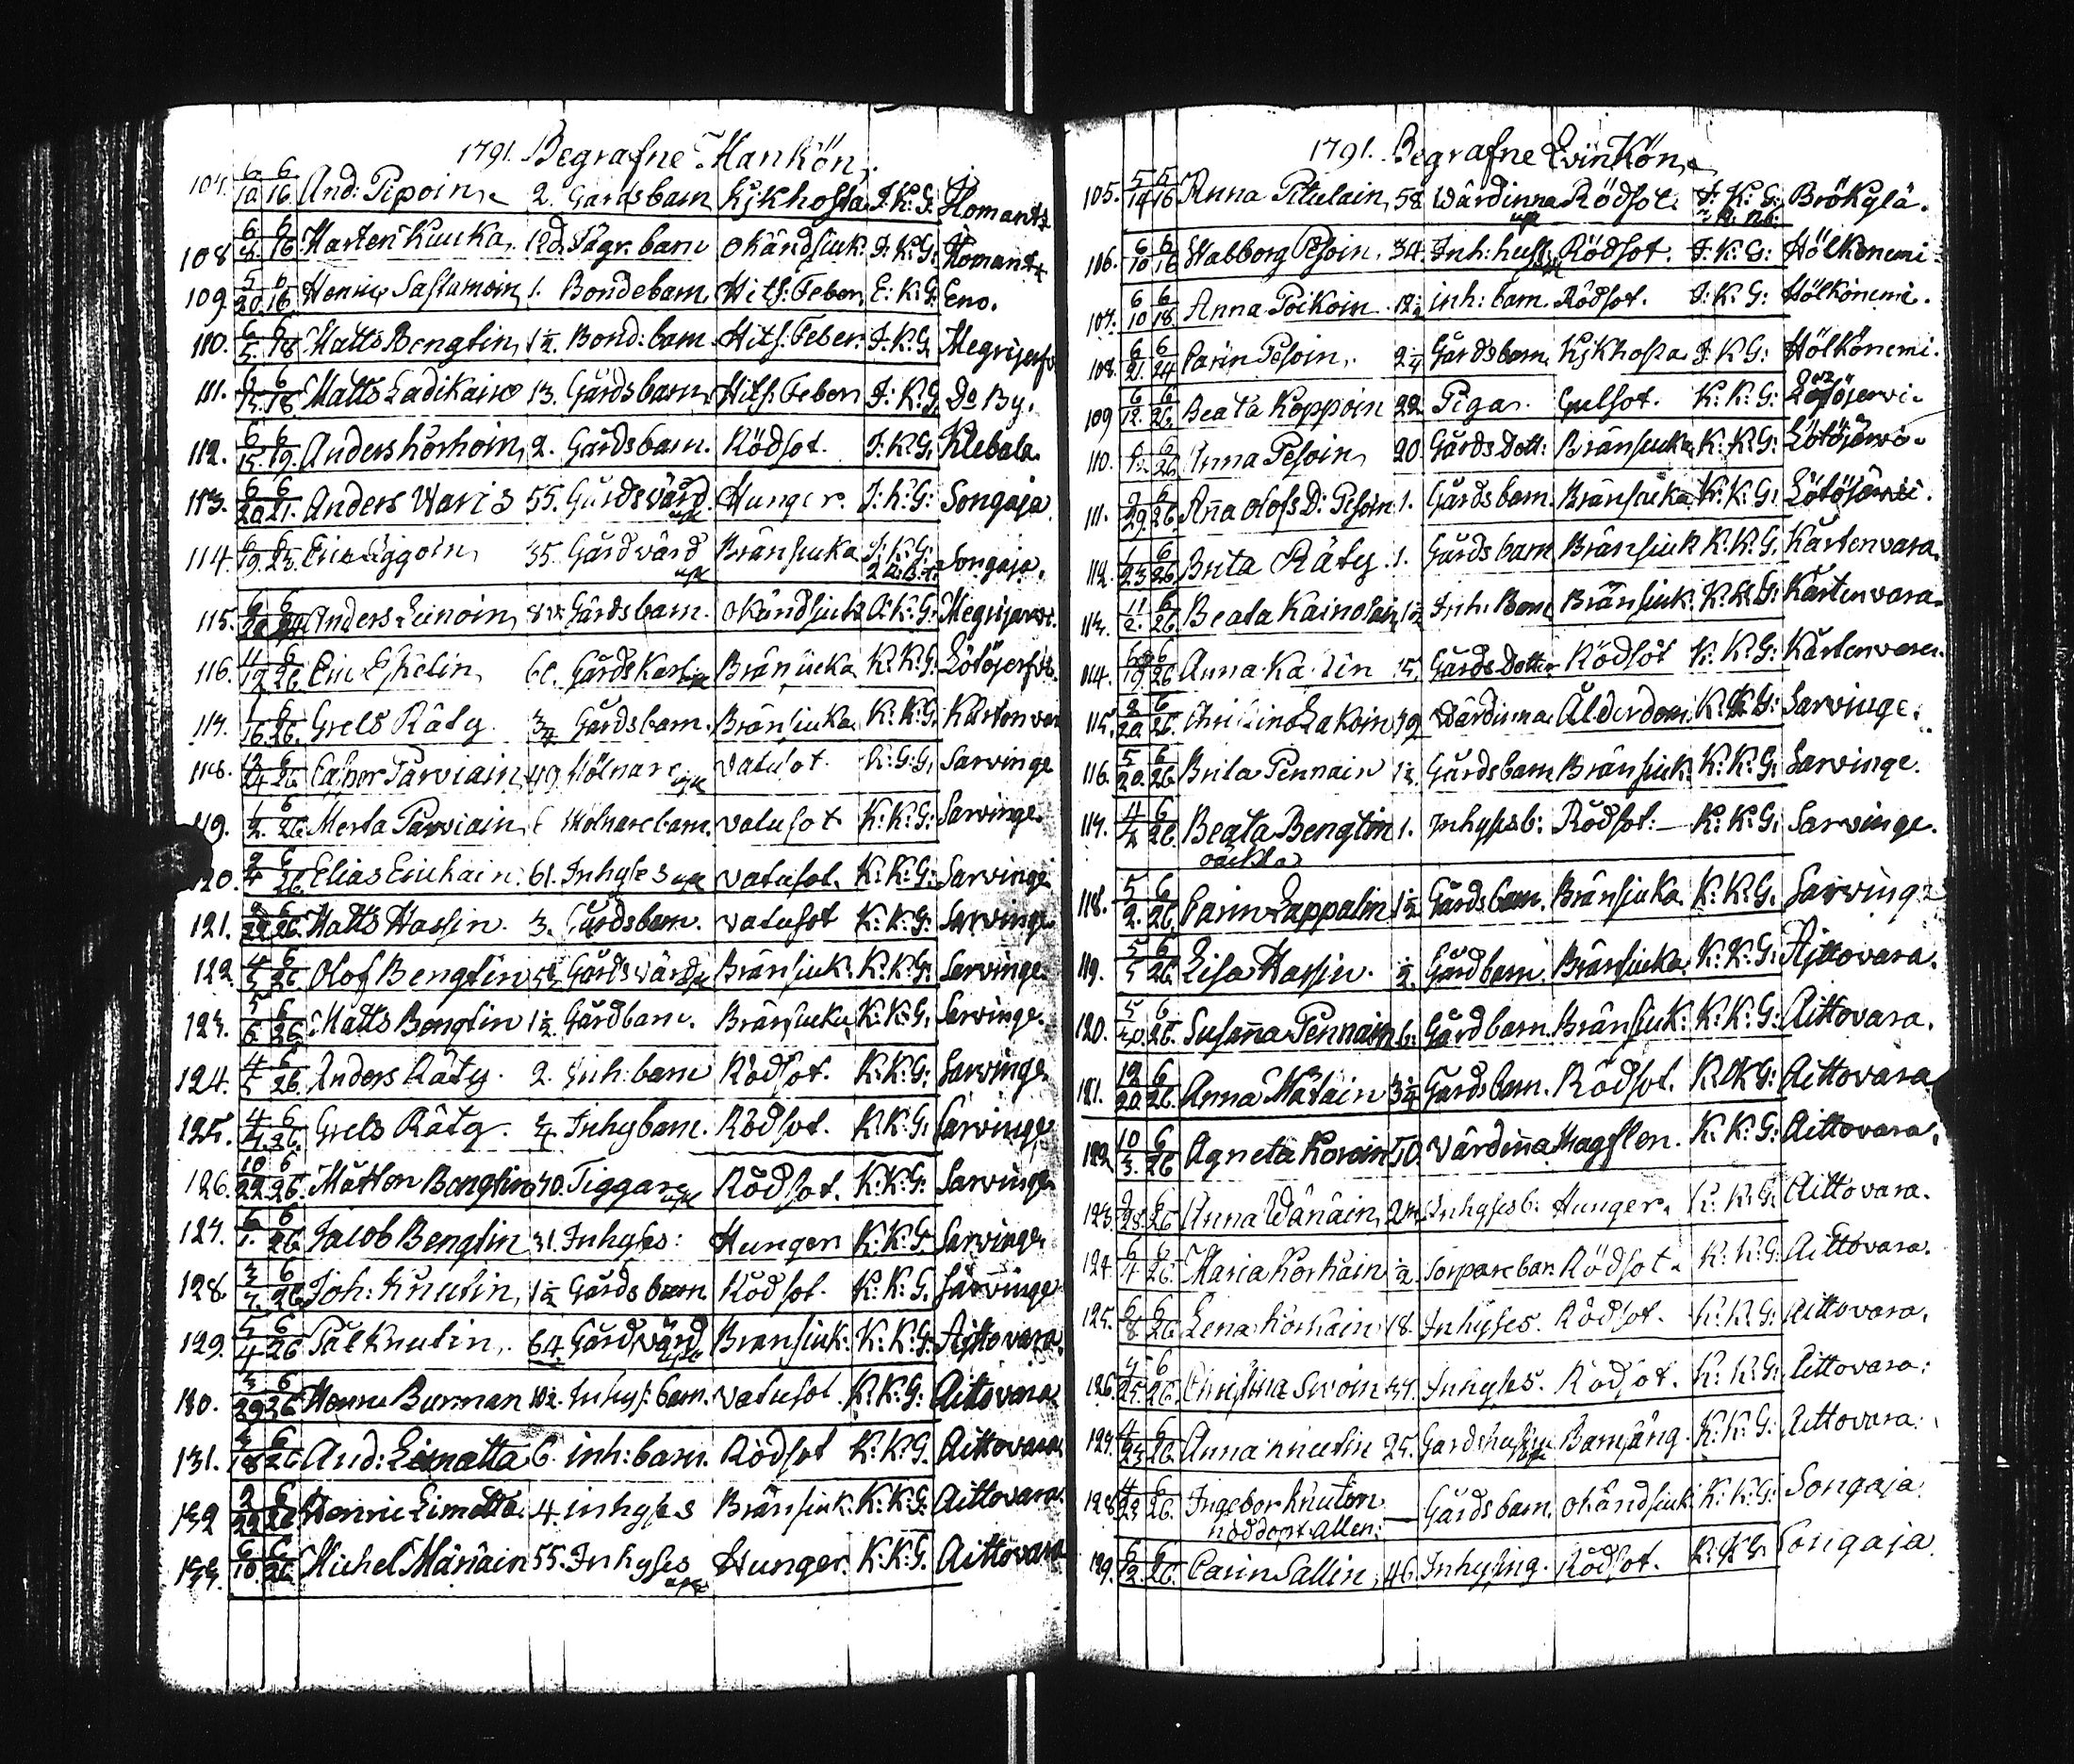 1791. Begrafne Mankön.
107. 6/10 6/16 And: Pipoin, 2. Gårdsbarn Kjkhosta I:K:G: Ilomants
108 6/8. 6/16 Marten Kuuka. 12d. Tigr. barn Okändsiuk. I:K:G: Ilomants
109 5/20. 6/16. Henric Sastamoin, 1. Bondebarn. Hits: Feber, E: K: G: Eno.
110. 6/5. 6/18 Matts Bengtin, 1½. Bond: barn. Hits: Feber. I:K:G, Megrijerfvi
111. 6/15. 6/18. Matts Ladikain 13. Gårdsbarn Hits: Feber I: K: G, Do By.
112. 6/15. 6/19. Anders Korhoin, 2. Gårdsbarn. Rödsot. I:K:G, Klebala.
113. 6/20. 6/21. Anders Waris 55. Gårdsvärd Hunger. I:K:G: Songaja
114. 6/19. Eric Iggoin, 35. Gårdvärd Bränsiuka I:K:G: Songaja.
115. 6/20 Anders Leinoin, Gårdsbarn. Okändsiuk K:G: Megrijarvi.
116. 11/12. 6/26. Eric Eskelin, Gårdskarl Bränsiuka K:K:G: Lötöjerfvi.
117. 1/16. 6/26. Grels Räty. ¾ Gårdsbarn. Bränsiuka K:K:G, Kårtenvara
118. 12/24 6/26 Casper Parviain, 49. Mölnare Vatusot. K:G:G, Sarvinge
119. 1/2. 6/26. Merta Parviain, 6 Mölnarebarn. Vatusot K:K:G: Sarvinge.
120. 2/4 6/26. Elias Erichain. 61. Inhyses Vatusot. K:K:G: Sarvinge.
121. 6/26. Matts Hassin. 3. Gårdsbarn. Vatusot K:K:G: Sarvinge
122. 4/5 6/26. Olof Bengtin Gårdsvärd Bränsiuk. K:K:G: Sarvinge.
123. 5/6 6/26. Matts Bengtin 1½. Gårdbarn. Bränsiuka K:K:G, Sarvinge.
124. 4/5 6/26. Anders Räty. 2. Inh: barn Rödsot. K:K:G: Sarvinge
125. 4/4. 6/26 Grels Räty. ¾. Inhybarn. Rödsot. K:K:G, Sarvinge
126. 10/22. 6/26. Mårten Bengtin 40. Tiggare Rödsot. K:K:G: Sarvinge
127. 6/1. 6/26 Jacob Bengtin 31. Inhyses: Hunger K:K:G Sarvinge.
128. 3/7. 6/26. Joh: Knutin, 1½ Gårdsbarn Rödsot. K:K:G. Sarvinge
129. 5/4 6/26 Pål Knutin, 64. Gårdvärd Bransiuk: K:K:G: Ajttovara.
130. 3/29 6/26 Henric Burman Inhys: barn. Vatusot. K:K:G: Aittovara.
131. 3/18 6/26 And: Eimatta 6. inh: barn. Rödsot K:K:G. Aittovara.
132 2/22 6/26 Henric Eimatta. 4. inhyses Bränsiuk. K:K:G: Aittovara
133. 6/10. 6/26. Michel Märiäin 55. Inhyses Hunger. K:K:G. Aittovara
1791. Begrafne Qvinkön,
105. 5/14 6/16 Anna Pitulain, 58. Wärdinna Rödsot. I: K: G: Brökylä.
106. 6/10 6/16 Walborg Pesoin, 34. Inh: hust: Rödsot. I:K:G: Hölkönemi.
107. 6/10 6/18. Anna Poikoin inh: barn. Rödsot. I:K:G: Hölkönemi.
108. 6/21. 6/24 Carin Pesoin, 2¼ Gårdsbarn, Kjkhosta I:K:G: Hölkönemi.
109 6/12. 6/26. Beata Koppoin 22 Piga. Gulsot. K: K: G: Lötöjervi.
110. 6/26 Anna Pesoin, 20. Gårds Dott: Bränsiuka K:K:G: Lötöjerwi.
111. 6/26. Anna Olofs D: Pesoin 1. Gårdsbarn. Bränsiuka K:K:G: Lötöjärvi.
112. 1/23 6/26. Brita Räty 1. Gårdsbarn Bränsiuk K:K:G, Kårtenvara.
113. 11/2. 6/26. Beata Kainolain, 1½ Inh. Barn Bränsiuk. K:K:G: Kårtenvara.
114. 6/26 Anna 15, Gårds Dotter. Rödsot K:K:G: Kårtenvara.
115. 2/20 6/26. Christina Lakoin 79 Wärdinna Ålderdom. K:K:G: Sarvinge.
116. 5/20. 6/26 Brita Pennain 1½. Gårdsbarn Bränsiuk. K:K:G: Sarvinge.
117. 4/4 6/26. Beata Bengtin 1. Inhysesb: Rödsot: K:K:G: Sarvinge.
oäckta
118. 5/2. 6/26. Carin Lappalin 1½ Gårdsbarn. Bränsiuka K:K:G, Sarvinge
119. 5/5 6/26. Lisa Hassin. ½. Gårdbarn. Bränsiuka K:K:G: Ajttovara.
120. 5/20. 6/26. Susanna Pennain 6: Gårdbarn. Bränsiuk: K:K:G: Aittovara.
121. 12/20. 6/26. Anna Mätäin 3¼ Gårdsbarn. Rödsot. K:K:G: Aittovara
122 10/3. 6/26 Agneta Koroin 50. Värdinna Magplen. K:K:G: Aittovara.
123. 2/25. 6/26. Anna Wänäin, Inhysesb: Hunger. K:K:G, Aittovara.
124 6/4 6/26. Maria Korhäin ½ Torparebar. Rödsot. K:K:G: Aittovara.
125. 6/8 6/26 Lena Korhäin 18. Inhyses. Rödsot. K:K:G: Aittovara.
126. 4/25. 6/26. Christina Swoin Inhyses. Rödsot. K:K:G: Aittovara:
127. 4/23 6/26. Anna Knutin 25. Gårdshustru Barnsäng. K:K:G: Aittovara.
128 4/23 6/26. Ingebor Knuton — Gårdsbarn. Okändsiuk K:K:G: Songaja
nöddöpt Allen:
129. 6/12. 6/26. Carin Sallin, 46. Inhysing. Rödsot. K:K:G. Songaja